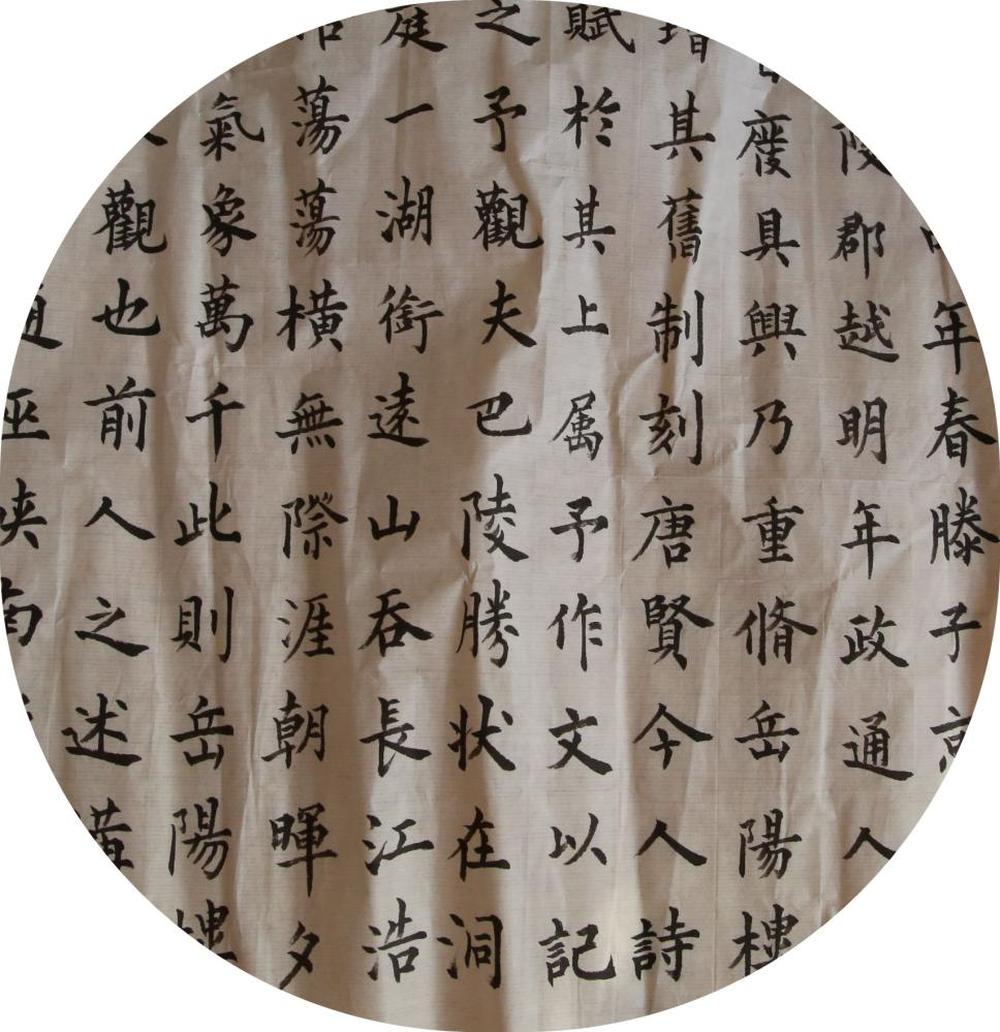 年春滕子京
陵郡越明年政通人
廢具興乃重脩岳陽樓
增其舊制刻唐賢今人詩
賦於其上属予作文以記
之予觀夫巴陵勝状在洞
庭一湖銜遠山吞長江浩
蕩蕩横無際涯朝暉夕
氣象萬千此則岳陽樓
觀也前人之述備
巫峽南